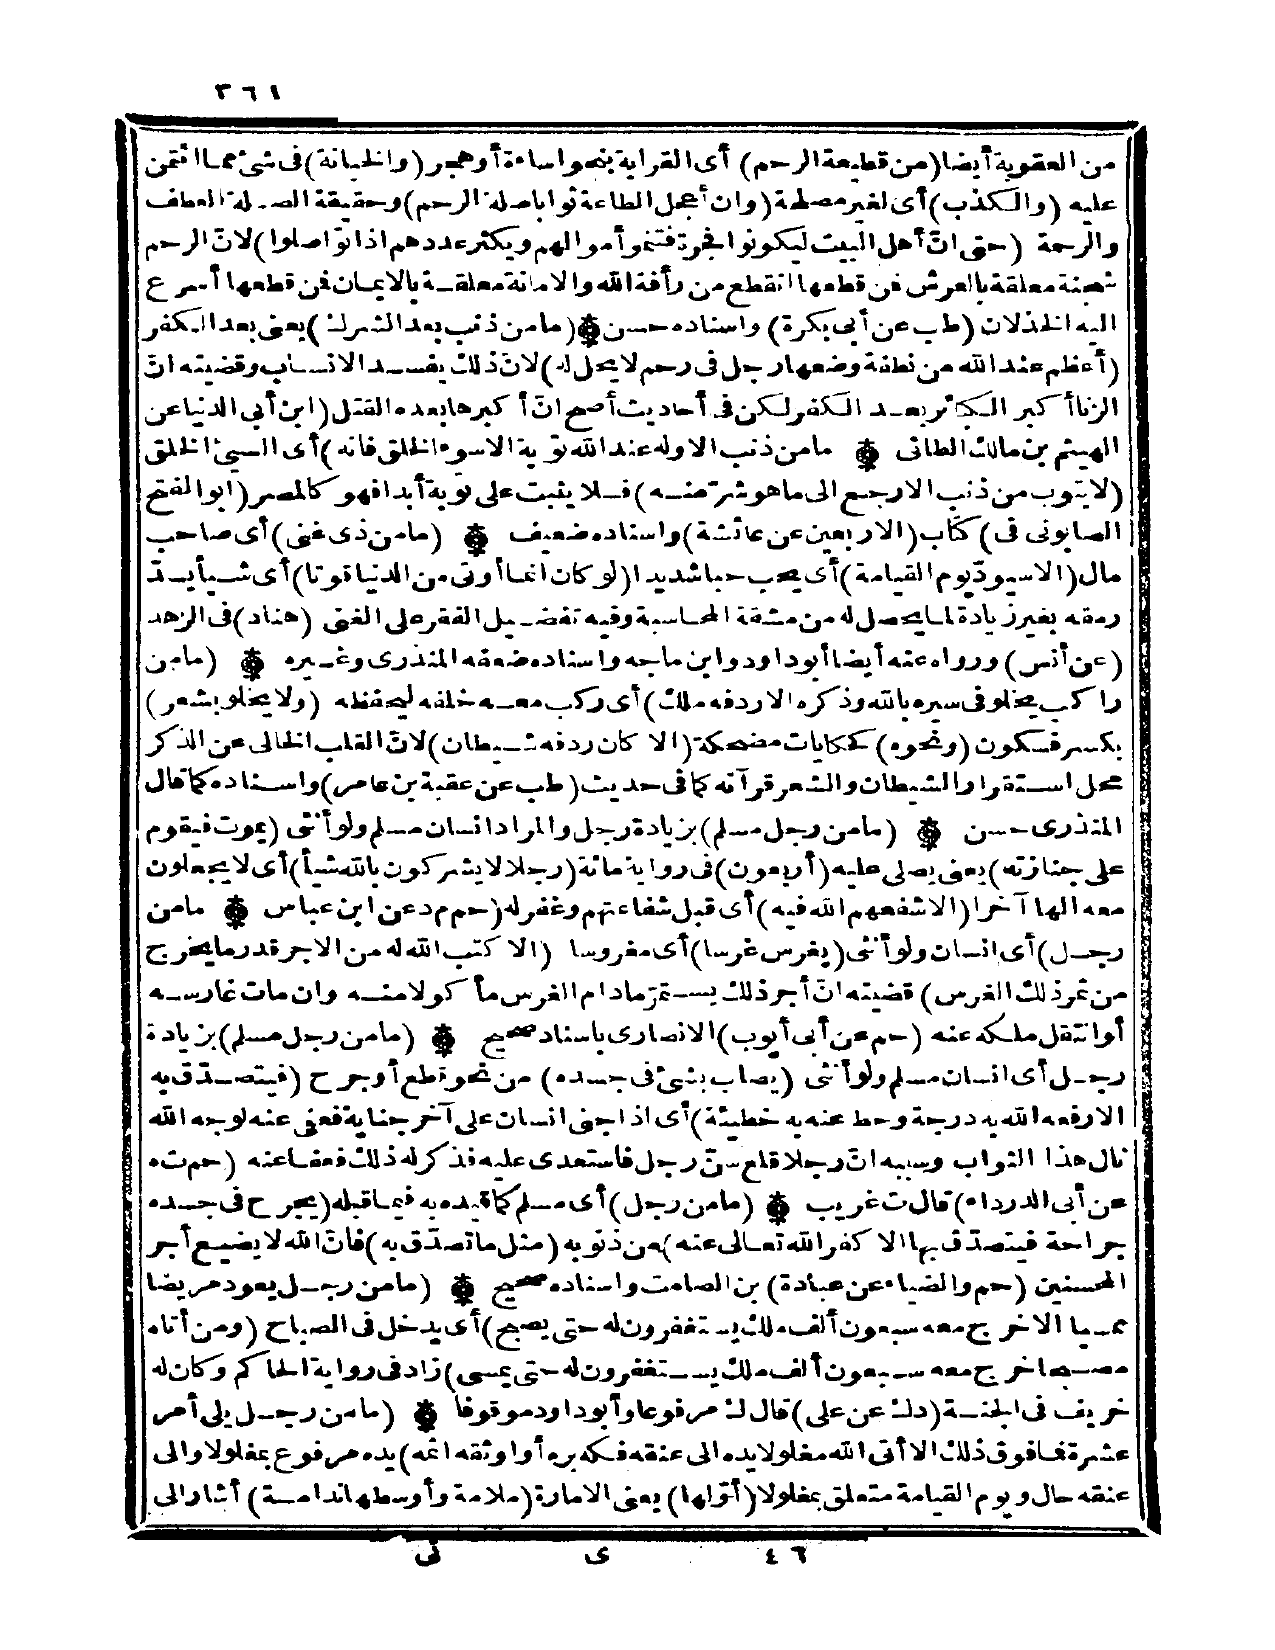 ٣٦١
من العقوبة أيضا (من قطيعة الرحم) أى القرابة بنحو اساءة أو هجر (والخيانة) فى شئ مما ائتمن
عليه (والكذب) أى لغير مصلحة (وان أعجل الطاعة ثوابا صلة الرحم) وحقيقة الصلة العطف
والرحمة (حتى انّ أهل البيت ليكونوا فجرة فتنمو أموالهم ويكثر عددهم اذا تواصلوا) لانّ الرحم
شجنة معلقة بالعرش فن قطعها انقطع من رأفة الله والامانة معلقة بالايمان فن قطعها أسرع
اليه الخذلان (طب عن أبى بكرة) واسناده حسن ۞ (ما من ذنب بعد الشرك) يعنى بعد الكفر
(أعظم عند الله من نطفة وضعها رجل فى رحم لا يحل له) لانّ ذلك يفسد الانساب وقضيته انّ
الزنا أكبر الكبائر بعد الكفر لكن فى أحاديث أصح انّ أكبرها بعده القتل (ابن أبى الدنيا عن
الهيثم بن مالك الطائى ۞ ما من ذنب الا وله عند الله توبة الا سوء الخلق فانه) أى السيئ الخلق
(لا يتوب من ذنب الا رجع الى ما هو شرّ منه) فلا يثبت على توبة أبدا فهو كالمصر (ابو الفتح
الصابونى فى) كتاب (الاربعين عن عائشة) واسناده ضعيف ۞ (ما من ذى غنى) أى صاحب
مال (الا سيودّ يوم القيامة) أى يحب حبا شديدا (لو كان انما أوتى من الدنيا قوتا) أى شيأ يسدّ
رمقه بغير زيادة لما يحصل له من مشقة المحاسبة وفيه تفضيل الفقر على الغنى (هناد) فى الزهد
(عن أنس) ورواه عنه أيضا أبو داود وابن ماجه واسناده ضعفه المنذرى وغيره ۞ (ما من
راكب يخلو فى سيره بالله وذكره الا ردفه ملك) أى ركب معه خلفه ليحفظه (ولا يخلو بشعر)
بكسر فسكون (ونحوه) كحكايات مضحكة (الا كان ردفه شيطان) لانّ القلب الخالى عن الذكر
محل استقرار الشيطان والشعر قرآنه كما فى حديث (طب عن عقبة بن عامر) واسناده كما قال
المنذرى حسن ۞ (ما من رجل مسلم) بزيادة رجل والمراد انسان مسلم ولو أنثى (يموت فيقوم
على جنازته) يعنى يصلى عليه (أربعون) فى رواية مائة (رجلا لا يشركون بالله شيأ) أى لا يجعلون
معه الها آخر (الا شفعهم الله فيه) أى قبل شفاعتهم وغفر له (حم م د عن ابن عباس ۞ ما من
رجل) أى انسان ولو أنثى (يغرس غرسا) أى مغروسا (الا كتب الله له من الاجر قدر ما يخرج
من ثمر ذلك الغرس) قضيته انّ أجر ذلك يستمرّ ما دام الغرس مأكولا منه وان مات غارسه
أو انتقل ملكه عنه (حم عن أبى أيوب) الانصارى باسناد صحيح ۞ (ما من رجل مسلم) بزيادة
رجل أى انسان مسلم ولو أنثى (يصاب بشئ فى جسده) من نحو قطع أو جرح (فيتصدّق به
الا رفعه الله به درجة وحط عنه به خطيئة) أى اذا جنى انسان على آخر جناية فعفى عنه لوجه الله
نال هذا الثواب وسببه انّ رجلا قلع سنّ رجل فاستعدى عليه فذكر له ذلك فعفا عنه (حم ت ه
عن أبى الدرداء) قال ت غريب ۞ (ما من رجل) أى مسلم كما قيده به فيما قبله (يجرح فى جسده
جراحة فيتصدّق بها الا كفر الله تعالى عنه) من ذنوبه (مثل ما تصدّق به) فانّ الله لا يضيع أجر
المحسنين (حم والضياء عن عبادة) بن الصامت واسناده صحيح ۞ (ما من رجل يعود مريضا
ممسيا الا خرج معه سبعون ألف ملك يستغفرون له حتى يصبح) أى يدخل فى الصباح (ومن أتاه
مصبحا خرج معه سبعون ألف ملك يستغفرون له حتى يمسى) زاد فى رواية الحاكم وكان له
خريف فى الجنة (د ك عن على) قال ك مرفوعا وأبو داود موقوفا ۞ (ما من رجل يلى أمر
عشرة فما فوق ذلك الا أتى الله مغلولا يده الى عنقه فكه بره أو اوثقه اثمه) يده مرفوع بمغلولا والى
عنقه حال ويوم القيامة متعلق بمغلولا (أوّلها) يعنى الامارة (ملامة وأوسطها ندامة) أشار الى
٤٦ ى نى